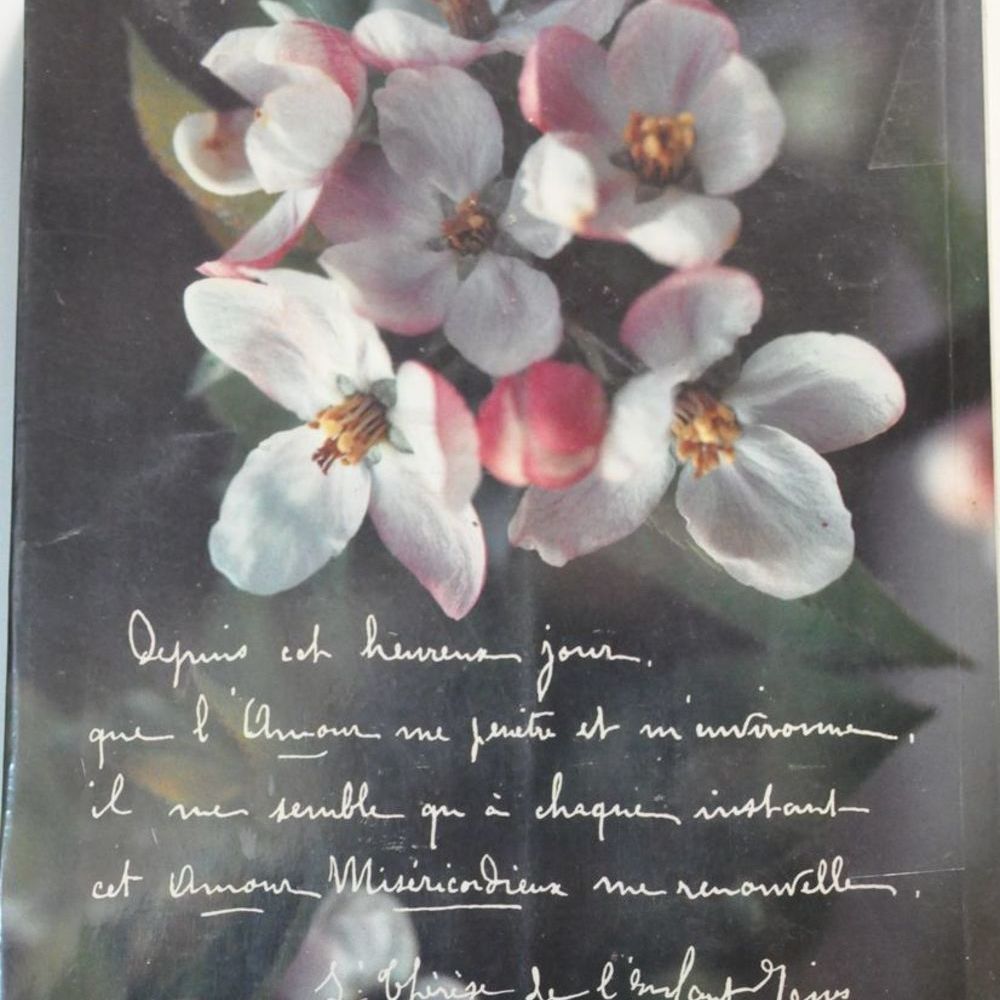 Depuis cet heureux jour,
que l'Amour me pénètre et m'environne,
il me semble qu'à chaque instant
cet Amour Miséricordieux me renouvelle,
St Thérèse de l'Enfant Jésus